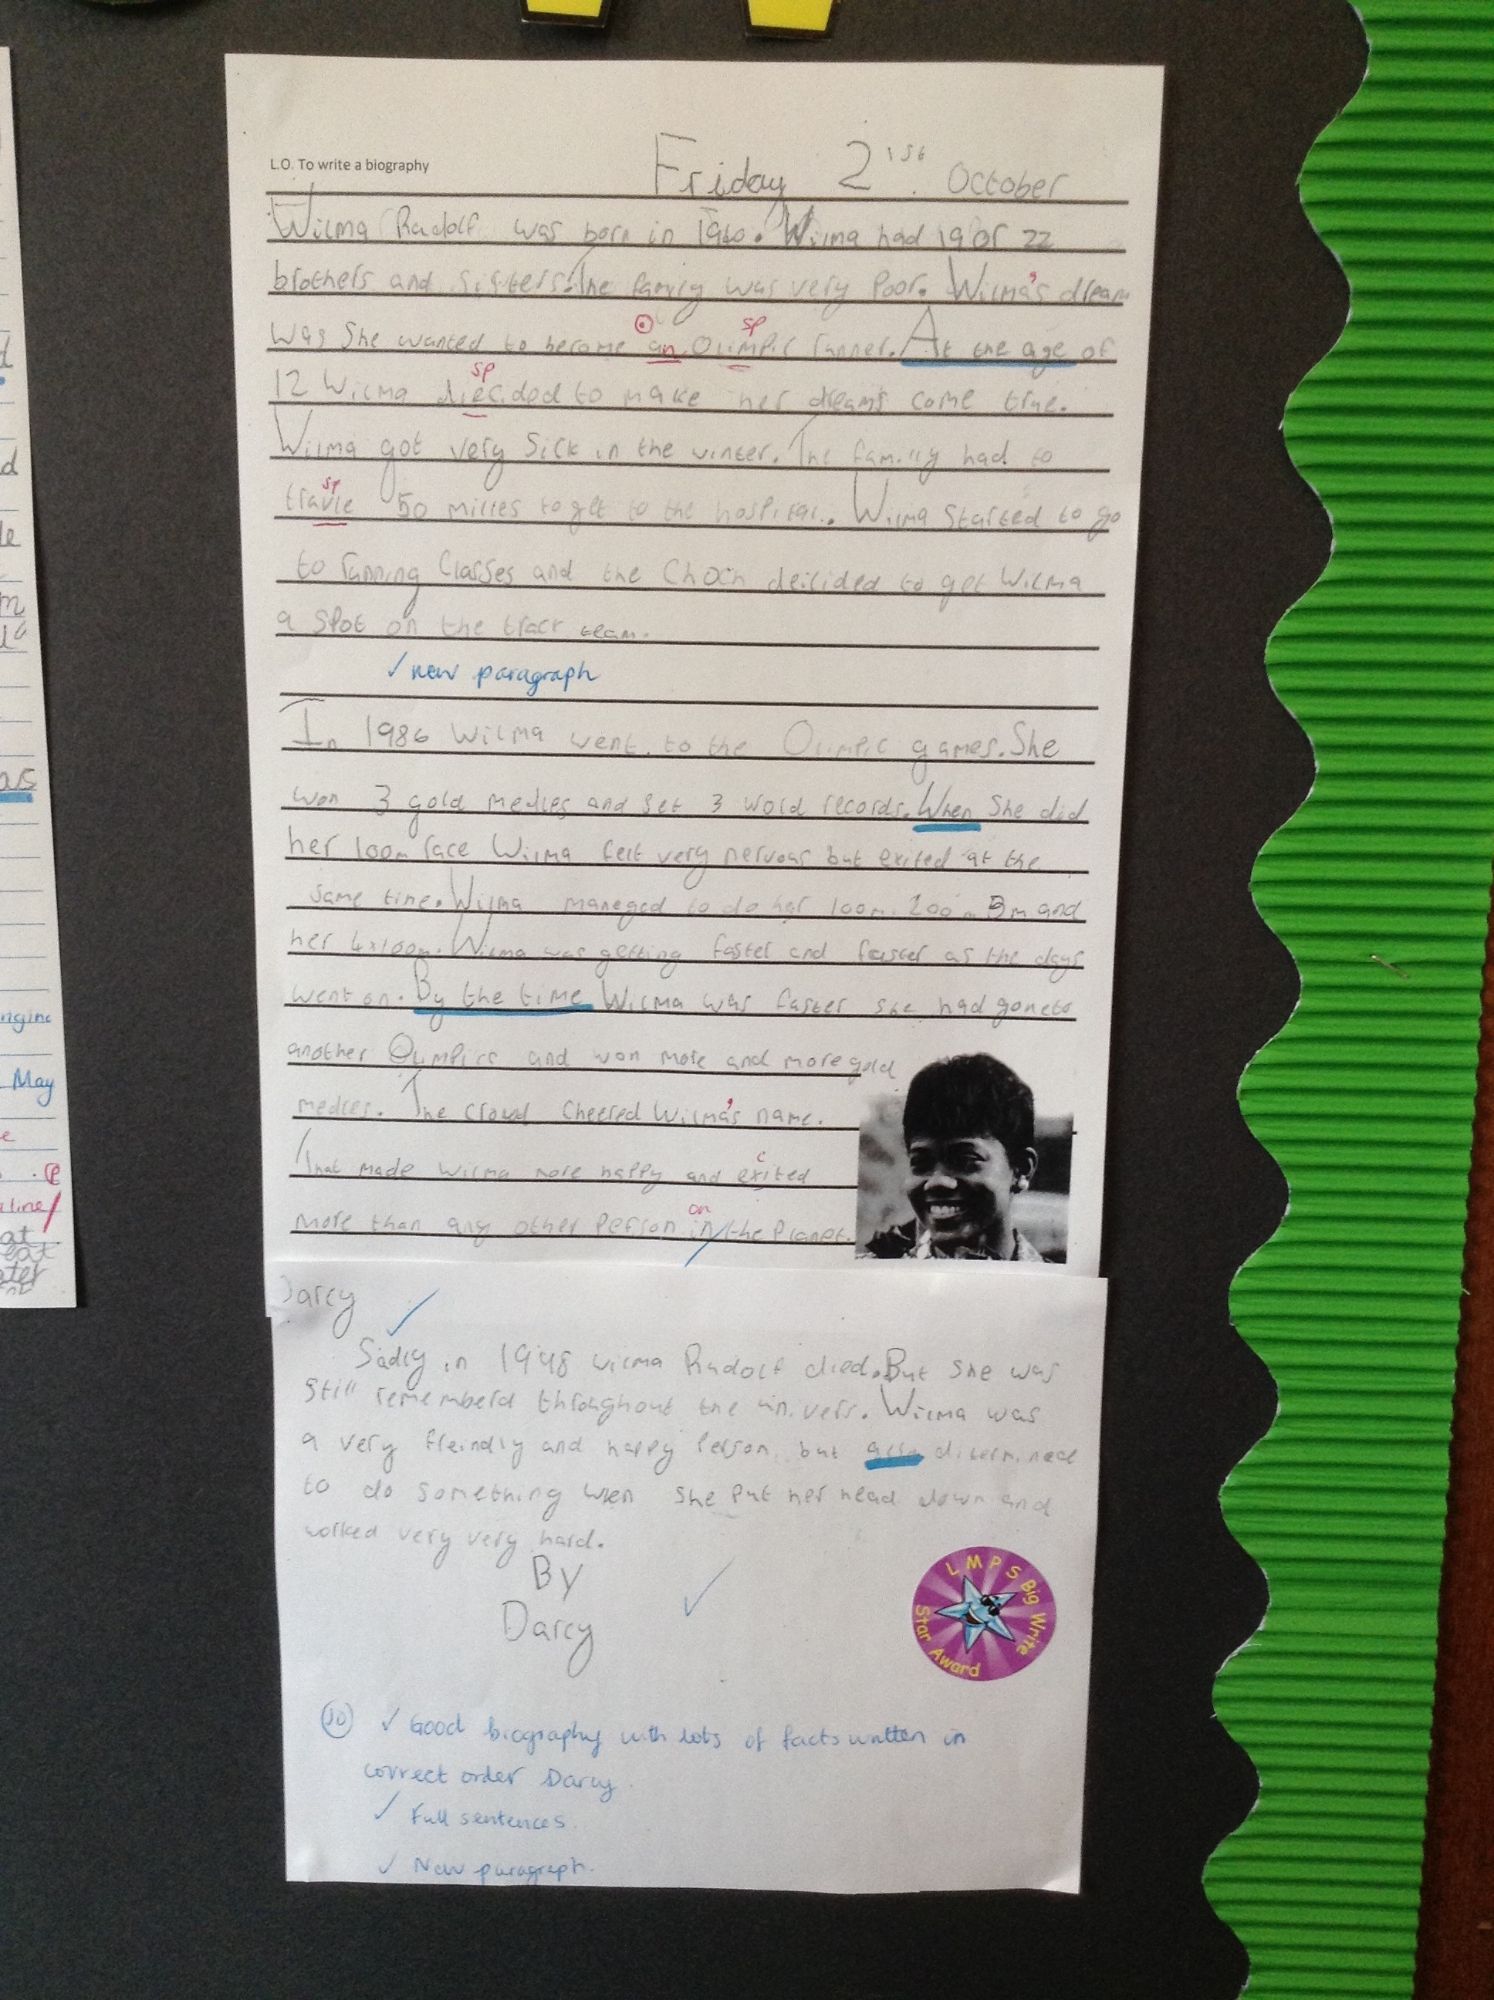 L.O. To write a biography
Friday 21st. October
Wilma Rudolf was born in 1960. Wilma had 19 or 22
brothers and sisters. The family was very Poor. Wilma's dream
was She wanted to become an Olimpic runner. At the age of
sp
12 Wilma diecided to make her dreams come true.
sp
Wilma got very Sick in the winter. The family had to
travle 50 milles to get to the hospital. Wilma Started to go
sp
to running Classes and the Choch deicided to get Wilma
a Spot on the track team.
✓ new paragraph
In 1986 Wilma went to the Olimpic games. She
won 3 gold medles and set 3 word records. When She did
her 100m race Wilma felt very nervous but exited at the
same time. Wilma maneged to do her 100m 200m and
her 4x100m. Wilma was getting faster and faster as the days
went on. By the time Wilma was faster she had gone to
another Olimpics and won more and more gold
medles. The crowd cheered Wilma's name.
That made wilma more happy and exited
c
more than any other Person in the Planet.
on
Darcy
Sadly in 1998 wilma Rudolf died. But she was
still rememberd throughout the univers. Wilma was
a very freindly and happy Person but diterminned
to do something when she put her head down and
worked very very hard.
By
Darcy
LMPS Big Write
Star Award
✓ Good biography with lots of facts written in
correct order Darcy.
✓ Full sentences.
✓ New paragraph.
May